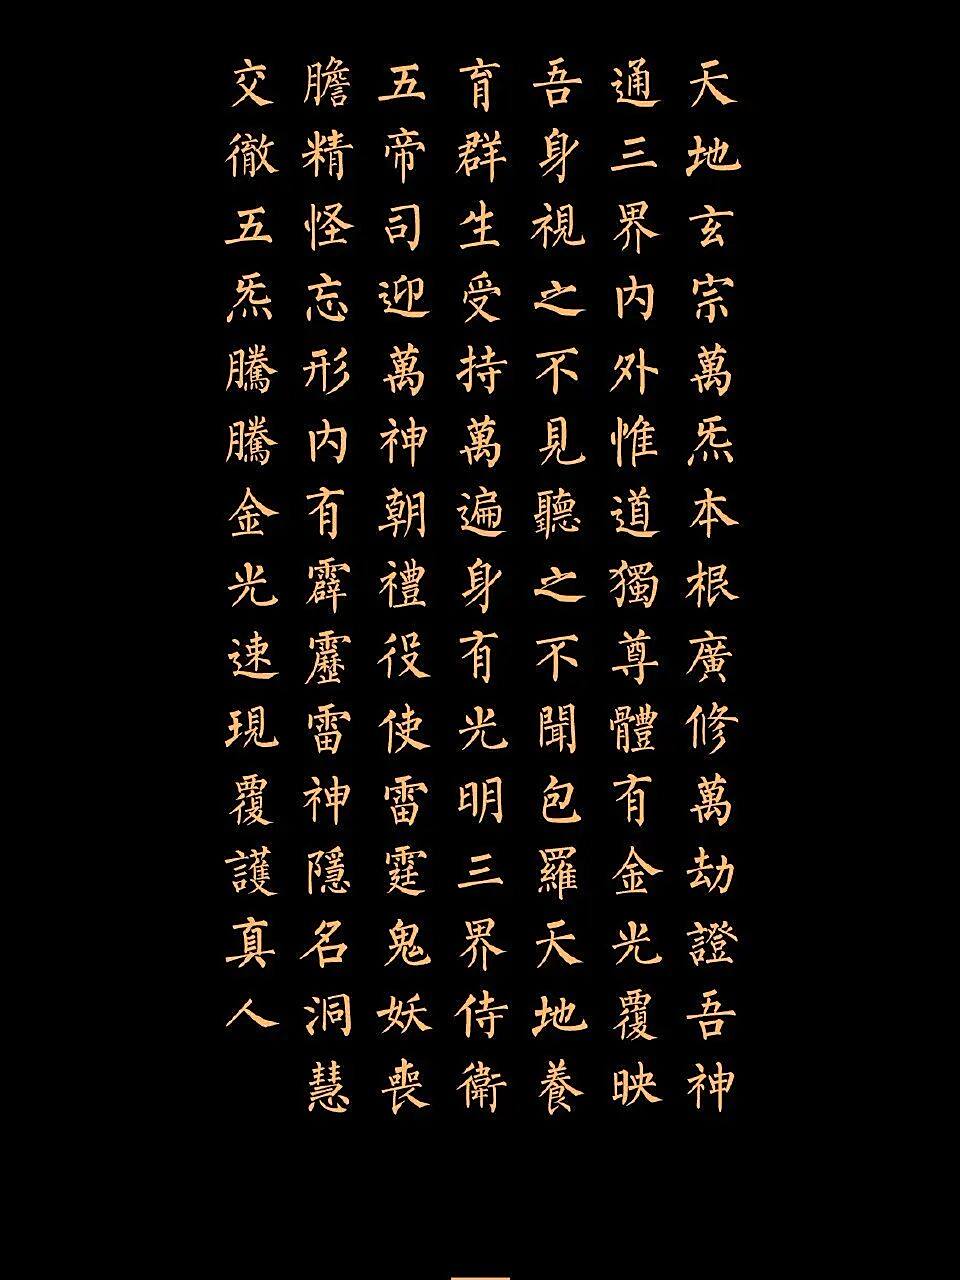 天地玄宗萬炁本根廣修萬劫證吾神
通三界內外惟道獨尊體有金光覆映
吾身視之不見聽之不聞包羅天地養
育群生受持萬遍身有光明三界侍衛
五帝司迎萬神朝禮役使雷霆鬼妖喪
膽精怪忘形內有霹靂雷神隱名洞慧
交徹五炁騰騰金光速現覆護真人